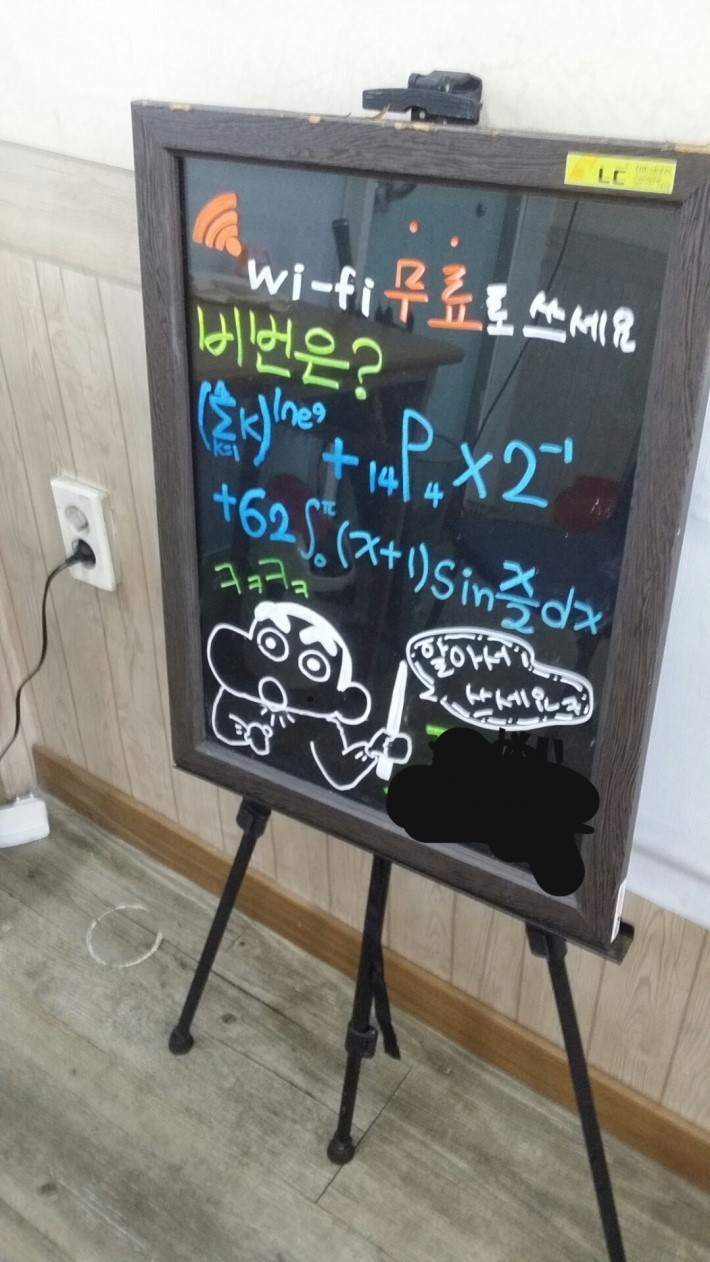 wi-fi 무료로 쓰세요
비번은?
(∑_{k=1}^{4} k)^{ln e^9} + ₁₄P₄ × 2⁻¹
+62∫₀^π (x+1) sin x/2 dx
ㅋㅋㅋㅋ
알아서
쓰세요